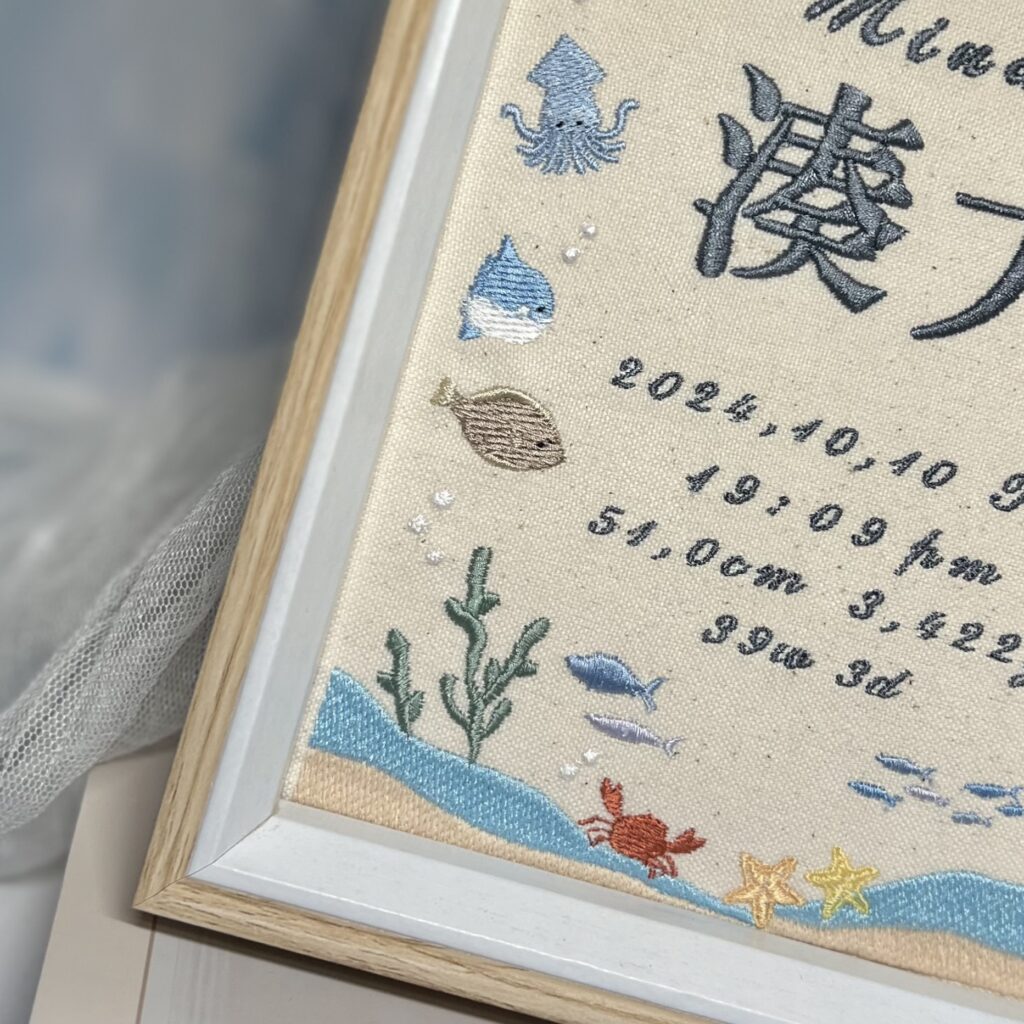 Mina
湊
2024,10,10
19:09 pm
51,0cm 3,422g
39w 3d